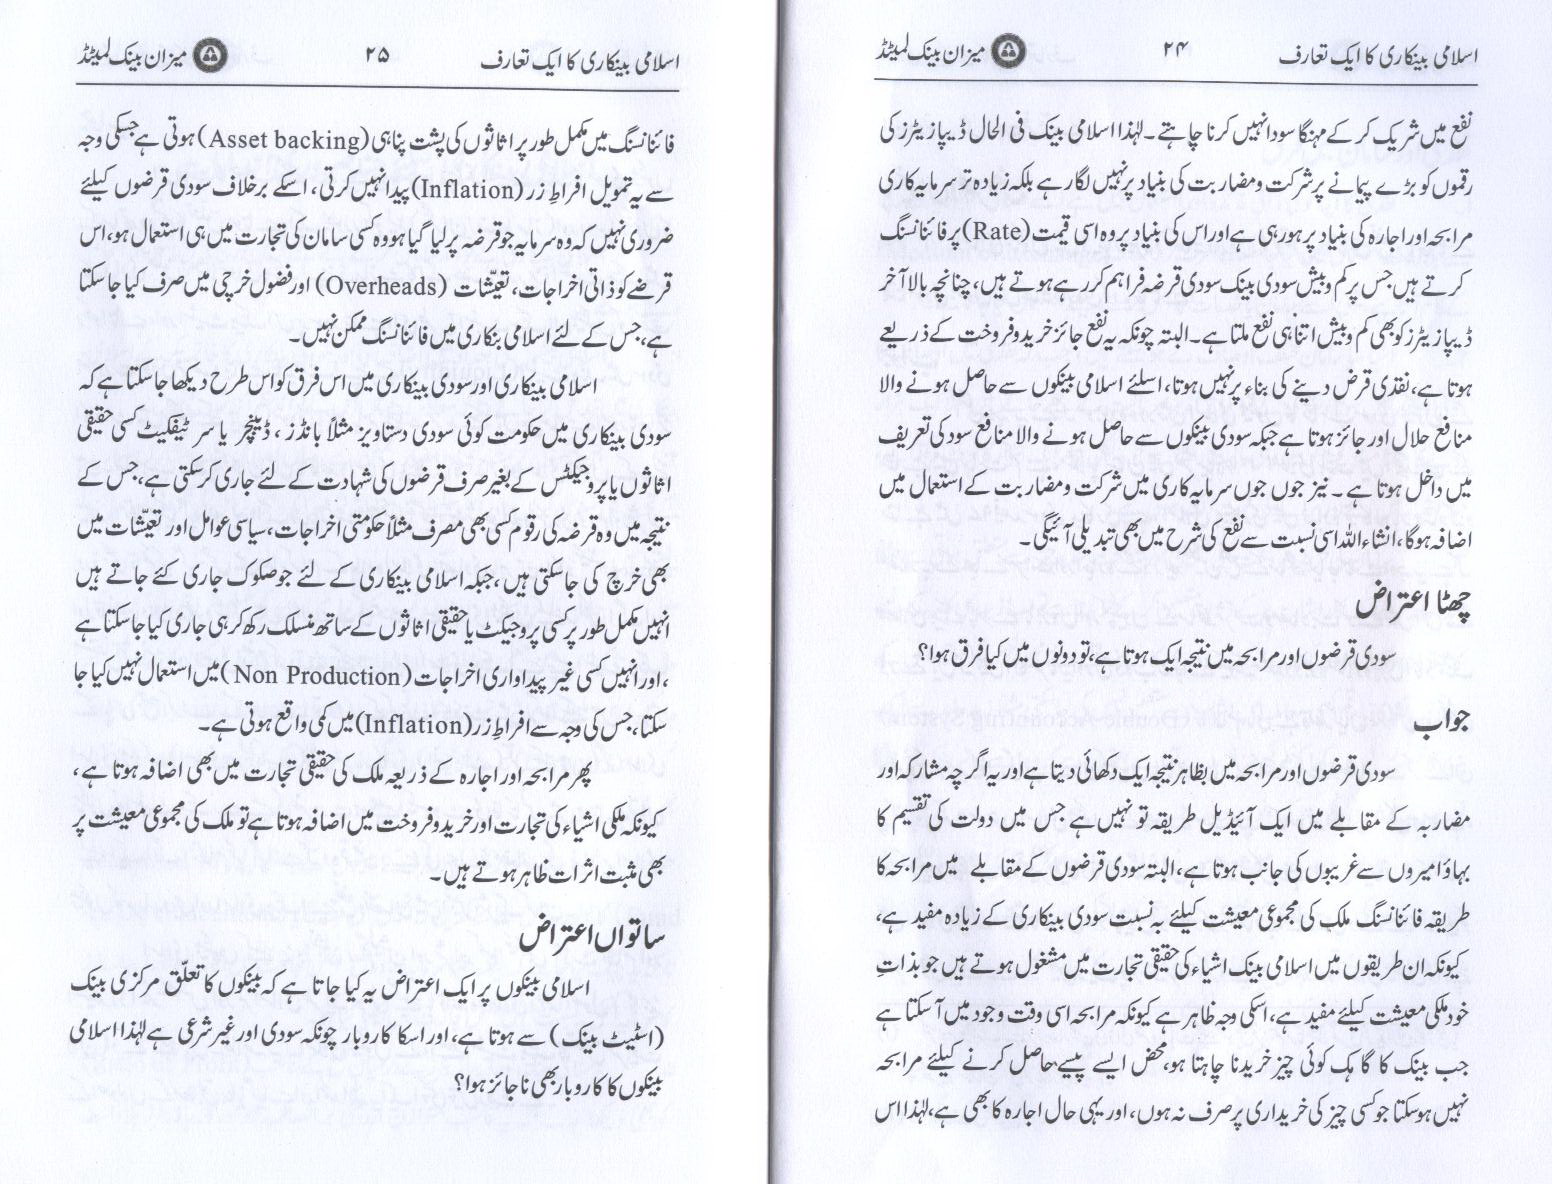 اسلامی بینکاری کا ایک تعارف ۲۴ میزان بینک لمیٹڈ
نفع میں شریک کر کے مہنگا سودا نہیں کرنا چاہتے۔ لہٰذا اسلامی بینک فی الحال ڈیپازیٹرز کی
رقموں کو بڑے پیمانے پر شرکت و مضاربت کی بنیاد پر نہیں لگا رہے بلکہ زیادہ تر سرمایہ کاری
مرابحہ اور اجارہ کی بنیاد پر ہو رہی ہے اور اس کی بنیاد پر وہ اسی قیمت (Rate) پر فائنانسنگ
کرتے ہیں جس پر کم و بیش سودی بینک سودی قرضہ فراہم کر رہے ہوتے ہیں، چنانچہ بالآخر
ڈیپازیٹرز کو بھی کم و بیش اتنا ہی نفع ملتا ہے۔ البتہ چونکہ یہ نفع جائز خرید و فروخت کے ذریعے
ہوتا ہے، نقدی قرض دینے کی بناء پر نہیں ہوتا، اسلئے اسلامی بینکوں سے حاصل ہونے والا
منافع حلال اور جائز ہوتا ہے جبکہ سودی بینکوں سے حاصل ہونے والا منافع سود کی تعریف
میں داخل ہوتا ہے۔ نیز جوں جوں سرمایہ کاری میں شرکت و مضاربت کے استعمال میں
اضافہ ہوگا، انشاء اللہ اسی نسبت سے نفع کی شرح میں بھی تبدیلی آئیگی۔
چھٹا اعتراض
سودی قرضوں اور مرابحہ میں نتیجہ ایک ہوتا ہے، تو دونوں میں کیا فرق ہوا؟
جواب
سودی قرضوں اور مرابحہ میں بظاہر نتیجہ ایک دکھائی دیتا ہے اور یہ اگر چہ مشارکہ اور
مضاربہ کے مقابلے میں ایک آئیڈیل طریقہ تو نہیں ہے جس میں دولت کی تقسیم کا
بہاؤ امیروں سے غریبوں کی جانب ہوتا ہے، البتہ سودی قرضوں کے مقابلے میں مرابحہ کا
طریقہ فائنانسنگ ملک کی مجموعی معیشت کیلئے بہ نسبت سودی بینکاری کے زیادہ مفید ہے،
کیونکہ ان طریقوں میں اسلامی بینک اشیاء کی حقیقی تجارت میں مشغول ہوتے ہیں جو بذاتِ
خود ملکی معیشت کیلئے مفید ہے، اسکی وجہ ظاہر ہے کیونکہ مرابحہ اسی وقت وجود میں آ سکتا ہے
جب بینک کا گاہک کوئی چیز خریدنا چاہتا ہو، محض ایسے پیسے حاصل کرنے کیلئے مرابحہ
نہیں ہو سکتا جو کسی چیز کی خریداری پر صرف نہ ہوں، اور یہی حال اجارہ کا بھی ہے، لہٰذا اس
اسلامی بینکاری کا ایک تعارف ۲۵ میزان بینک لمیٹڈ
فائنانسنگ میں مکمل طور پر اثاثوں کی پشت پناہی (Asset backing) ہوتی ہے جسکی وجہ
سے یہ تمویل افراطِ زر (Inflation) پیدا نہیں کرتی، اسکے برخلاف سودی قرضوں کیلئے
ضروری نہیں کہ وہ سرمایہ جو قرضہ پر لیا گیا ہو وہ کسی سامان کی تجارت میں ہی استعمال ہو، اس
قرضے کو ذاتی اخراجات، تعیّشات (Overheads) اور فضول خرچی میں صرف کیا جا سکتا
ہے، جس کے لئے اسلامی بنکاری میں فائنانسنگ ممکن نہیں۔
اسلامی بینکاری اور سودی بینکاری میں اس فرق کو اس طرح دیکھا جا سکتا ہے کہ
سودی بینکاری میں حکومت کوئی سودی دستاویز مثلاً بانڈز، ڈیبنچر یا سرٹیفکیٹ کسی حقیقی
اثاثوں یا پروجیکٹس کے بغیر صرف قرضوں کی شہادت کے لئے جاری کر سکتی ہے، جس کے
نتیجہ میں وہ قرضہ کی رقوم کسی بھی مصرف مثلاً حکومتی اخراجات، سیاسی عوامل اور تعیّشات میں
بھی خرچ کی جا سکتی ہیں، جبکہ اسلامی بینکاری کے لئے جو صکوک جاری کئے جاتے ہیں
انہیں مکمل طور پر کسی پروجیکٹ یا حقیقی اثاثوں کے ساتھ منسلک رکھ کر ہی جاری کیا جا سکتا ہے
، اور انہیں کسی غیر پیداواری اخراجات (Non Production) میں استعمال نہیں کیا جا
سکتا، جس کی وجہ سے افراطِ زر (Inflation) میں کمی واقع ہوتی ہے۔
پھر مرابحہ اور اجارہ کے ذریعہ ملک کی حقیقی تجارت میں بھی اضافہ ہوتا ہے،
کیونکہ ملکی اشیاء کی تجارت اور خرید و فروخت میں اضافہ ہوتا ہے تو ملک کی مجموعی معیشت پر
بھی مثبت اثرات ظاہر ہوتے ہیں۔
ساتواں اعتراض
اسلامی بینکوں پر ایک اعتراض یہ کیا جاتا ہے کہ بینکوں کا تعلق مرکزی بینک
(اسٹیٹ بینک) سے ہوتا ہے، اور اسکا کاروبار چونکہ سودی اور غیر شرعی ہے لہٰذا اسلامی
بینکوں کا کاروبار بھی ناجائز ہوا؟